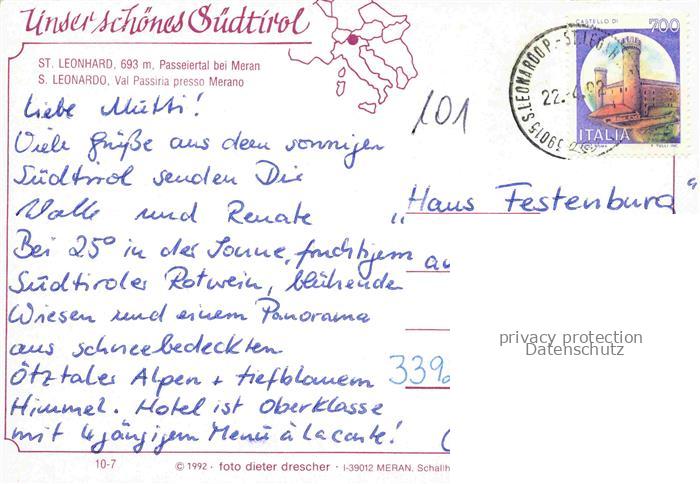 Unser schönes Südtirol
ST. LEONHARD, 693 m, Passeiertal bei Meran
S. LEONARDO, Val Passiria presso Merano
Liebe Mutti!
Viele Grüße aus dem sonnigen
Südtirol senden Dir
und Renate
Bei 25° in der Sonne, fruchtigem
Südtiroler Rotwein, blühende
Wiesen und einem Panorama
aus schneebedeckten
Ötztaler Alpen + tiefblauem
Himmel. Hotel ist Oberklasse
mit 4gängigem Menü à la carte!
10-7
© 1992 - foto dieter drescher - I-39012 MERAN, Schallh
101
CASTELLO DI
700
ITALIA
39015 S.LEONARDO P.
22.-4.
„Haus Festenburg"
339
privacy protection
Datenschutz